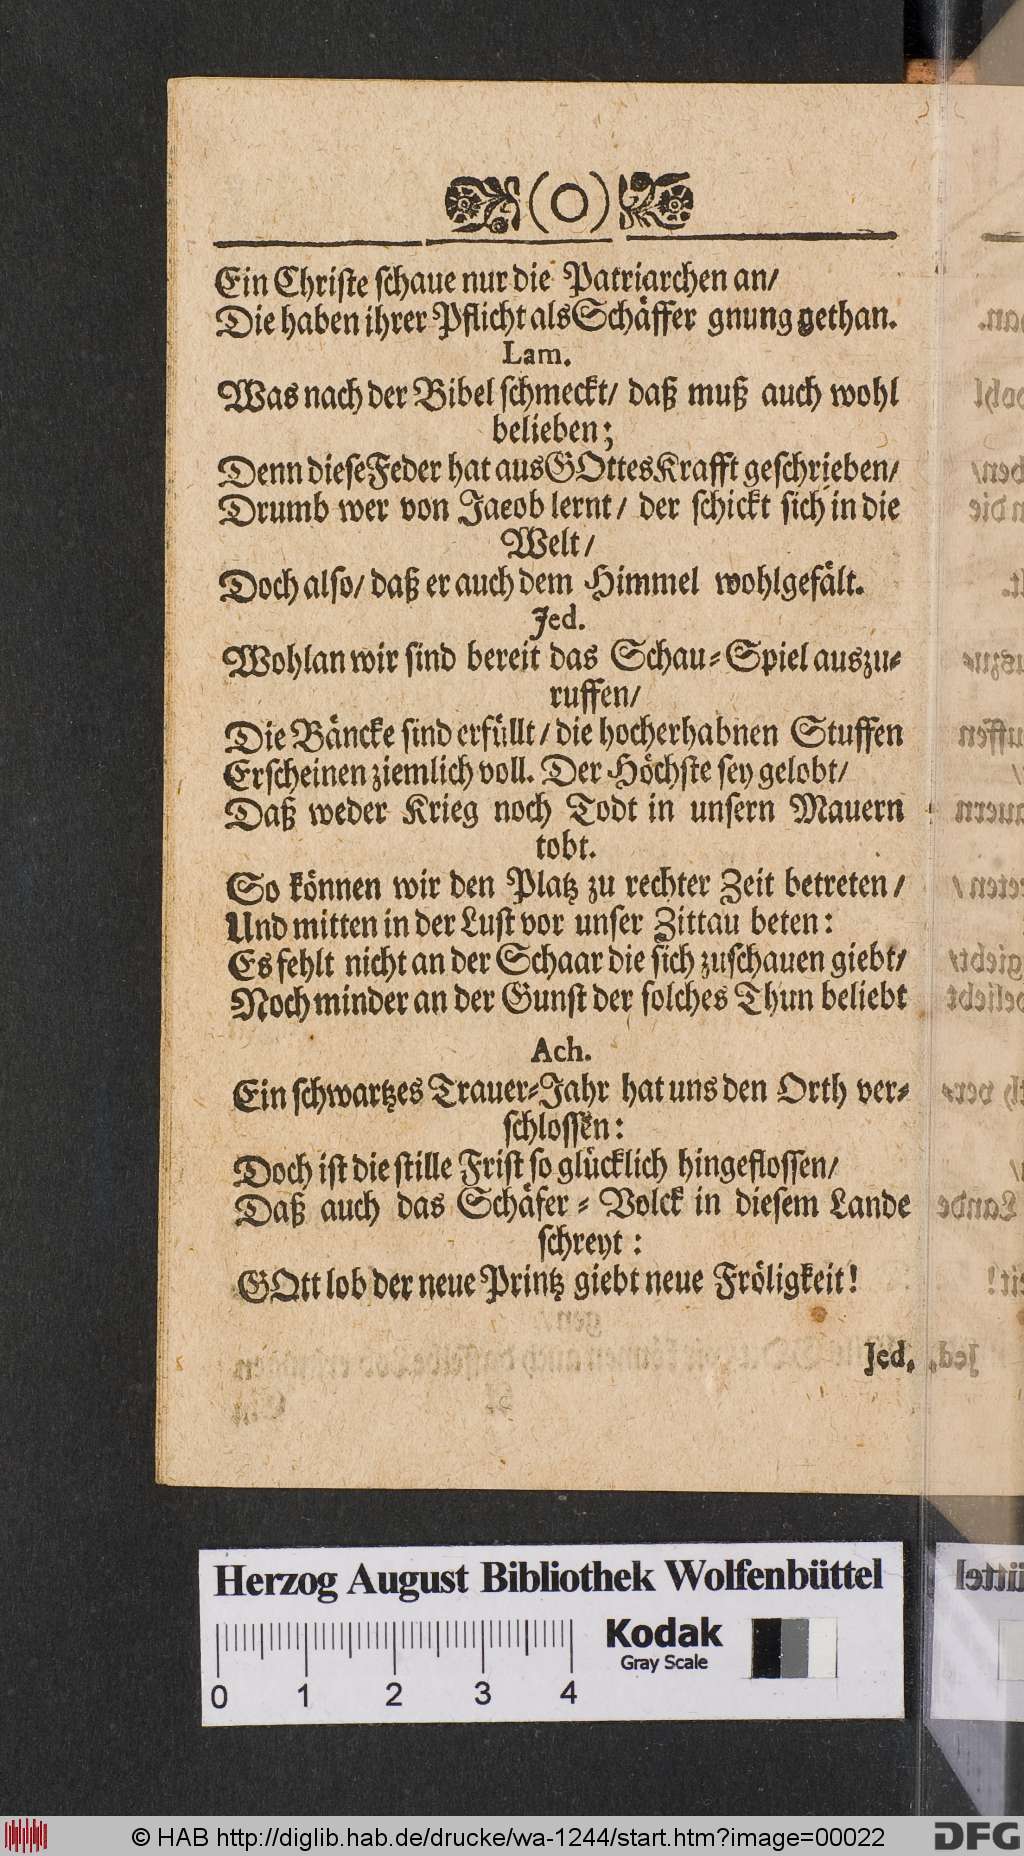 (O)
Ein Christe schaue nur die Patriarchen an/
Die haben ihrer Pflicht als Schäffer gnung gethan.
Lam.
Was nach der Bibel schmeckt/ daß muß auch wohl
belieben;
Denn diese Feder hat aus GOttes Krafft geschrieben/
Drumb wer von Jaeob lernt/ der schickt sich in die
Welt/
Doch also/ daß er auch dem Himmel wohlgefält.
Jed.
Wohlan wir sind bereit das Schau-Spiel auszu-
ruffen/
Die Bäncke sind erfüllt/ die hocherhabnen Stuffen
Erscheinen ziemlich voll. Der Höchste sey gelobt/
Daß weder Krieg noch Todt in unsern Mauern
tobt.
So können wir den Platz zu rechter Zeit betreten/
Und mitten in der Lust vor unser Zittau beten:
Es fehlt nicht an der Schaar die sich zuschauen giebt/
Noch minder an der Gunst der solches Thun beliebt
Ach.
Ein schwartzes Trauer-Jahr hat uns den Orth ver-
schlossen:
Doch ist die stille Frist so glücklich hingeflossen/
Daß auch das Schäfer-Volck in diesem Lande
schreyt:
GOtt lob der neue Printz giebt neue Fröligkeit!
Jed.
Herzog August Bibliothek Wolfenbüttel
Kodak
Gray Scale
0 1 2 3 4
© HAB http://diglib.hab.de/drucke/wa-1244/start.htm?image=00022
DFG